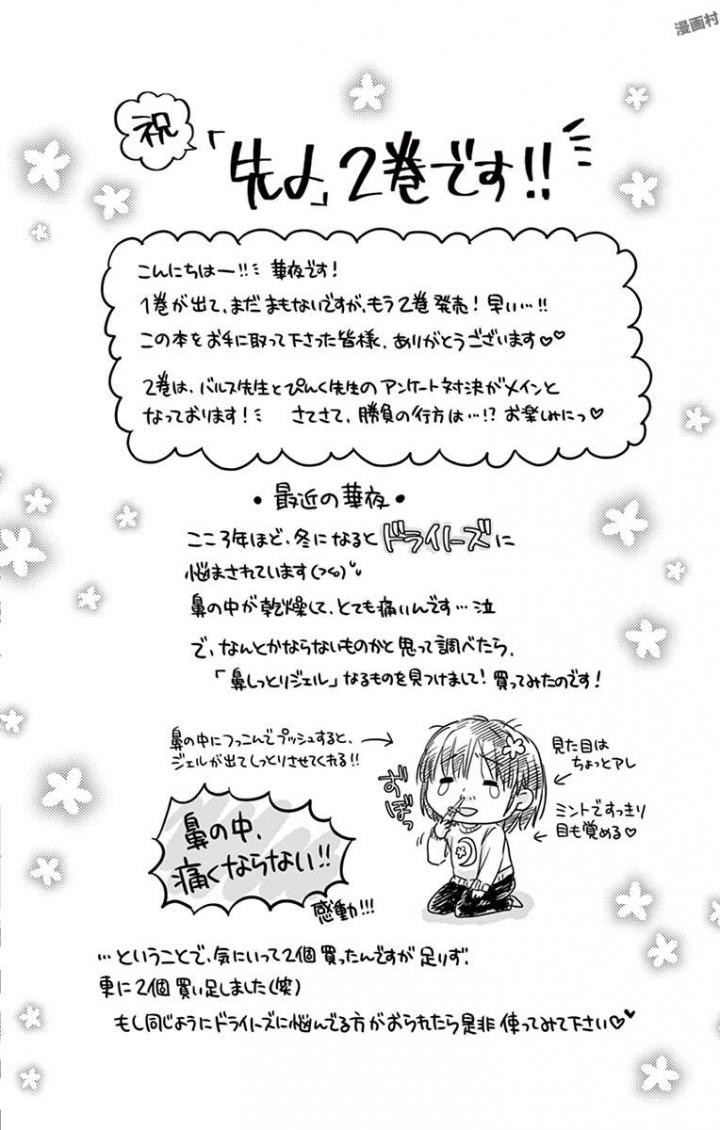 漫画村
祝
「先よ」2巻です!!
こんにちはー!! 華夜です!
1巻が出て、まだまもないですが、もう2巻発売!早い…!!
この本をお手に取って下さった皆様、ありがとうございます♡♡
2巻は、バルス先生とぴんく先生のアンケート対決がメインと
なっております! さてさて、勝負の行方は…!? お楽しみにっ♡
・最近の華夜・
ここ3年ほど、冬になるとドライノーズに
悩まされています
鼻の中が乾燥して、とても痛いんです…泣
で、なんとかならないものかと思って調べたら、
「鼻しっとりジェル」なるものを見つけまして!買ってみたのです!
鼻の中につっこんでプッシュすると、
ジェルが出てしっとりさせてくれる!!
ずぼっ
見た目は
ちょっとアレ
ミントですっきり
目も覚める♡
鼻の中、
痛くならない!!
感動!!!
…ということで、気にいって2個買ったんですが足りず、
更に2個買い足しました(笑)
もし同じようにドライノーズに悩んでる方がおられたら是非使ってみて下さい♡♥